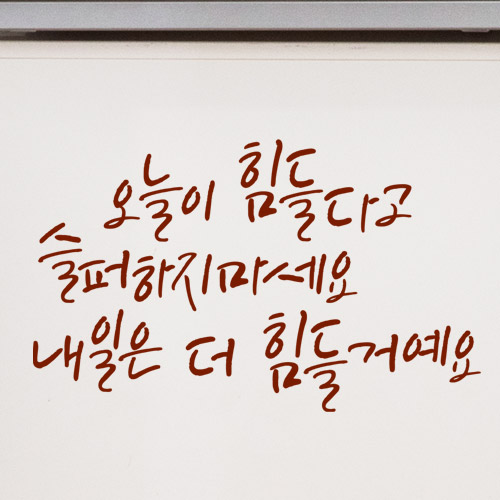 오늘이 힘들다고
슬퍼하지마세요
내일은 더 힘들거예요